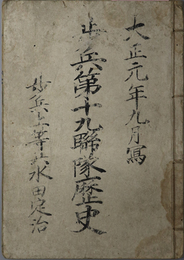 大正元年九月写
歩兵第十九聯隊歴史
歩兵一等卒永田定治